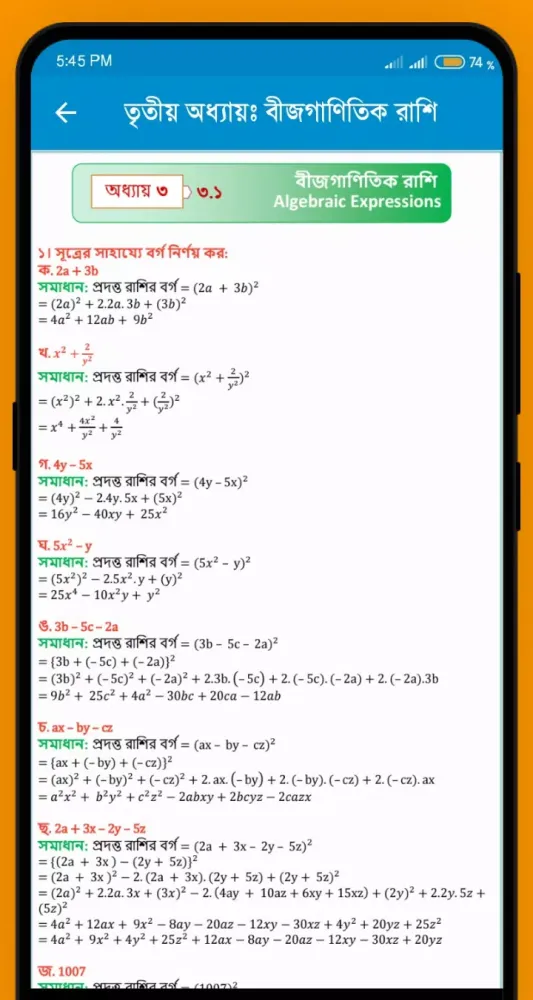 5:45 PM 74 %
তৃতীয় অধ্যায়ঃ বীজগাণিতিক রাশি
অধ্যায় ৩ ৩.১ বীজগাণিতিক রাশি
Algebraic Expressions
১। সূত্রের সাহায্যে বর্গ নির্ণয় কর:
ক. 2a + 3b
সমাধান: প্রদত্ত রাশির বর্গ = (2a + 3b)²
= (2a)² + 2.2a. 3b + (3b)²
= 4a² + 12ab + 9b²
খ. x² + 2/y²
সমাধান: প্রদত্ত রাশির বর্গ = (x² + 2/y²)²
= (x²)² + 2. x². 2/y² + (2/y²)²
= x⁴ + 4x²/y² + 4/y²
গ. 4y – 5x
সমাধান: প্রদত্ত রাশির বর্গ = (4y – 5x)²
= (4y)² − 2.4y. 5x + (5x)²
= 16y² − 40xy + 25x²
ঘ. 5x² – y
সমাধান: প্রদত্ত রাশির বর্গ = (5x² – y)²
= (5x²)² − 2.5x². y + (y)²
= 25x⁴ − 10x²y + y²
ঙ. 3b – 5c – 2a
সমাধান: প্রদত্ত রাশির বর্গ = (3b – 5c – 2a)²
= {3b + (– 5c) + (– 2a)}²
= (3b)² + (– 5c)² + (– 2a)² + 2.3b. (– 5c) + 2. (– 5c). (– 2a) + 2. (– 2a).3b
= 9b² + 25c² + 4a² − 30bc + 20ca − 12ab
চ. ax – by – cz
সমাধান: প্রদত্ত রাশির বর্গ = (ax – by – cz)²
= {ax + (– by) + (– cz)}²
= (ax)² + (– by)² + (– cz)² + 2. ax. (– by) + 2. (– by). (– cz) + 2. (– cz). ax
= a²x² + b²y² + c²z² − 2abxy + 2bcyz − 2cazx
ছ. 2a + 3x – 2y – 5z
সমাধান: প্রদত্ত রাশির বর্গ = (2a + 3x – 2y – 5z)²
= {(2a + 3x ) – (2y + 5z)}²
= (2a + 3x )² − 2. (2a + 3x). (2y + 5z) + (2y + 5z)²
= (2a)² + 2.2a. 3x + (3x)² − 2. (4ay + 10az + 6xy + 15xz) + (2y)² + 2.2y. 5z +
(5z)²
= 4a² + 12ax + 9x² − 8ay − 20az − 12xy − 30xz + 4y² + 20yz + 25z²
= 4a² + 9x² + 4y² + 25z² + 12ax − 8ay − 20az − 12xy − 30xz + 20yz
জ. 1007
সমাধান: প্রদত্ত রাশির বর্গ = (1007)²